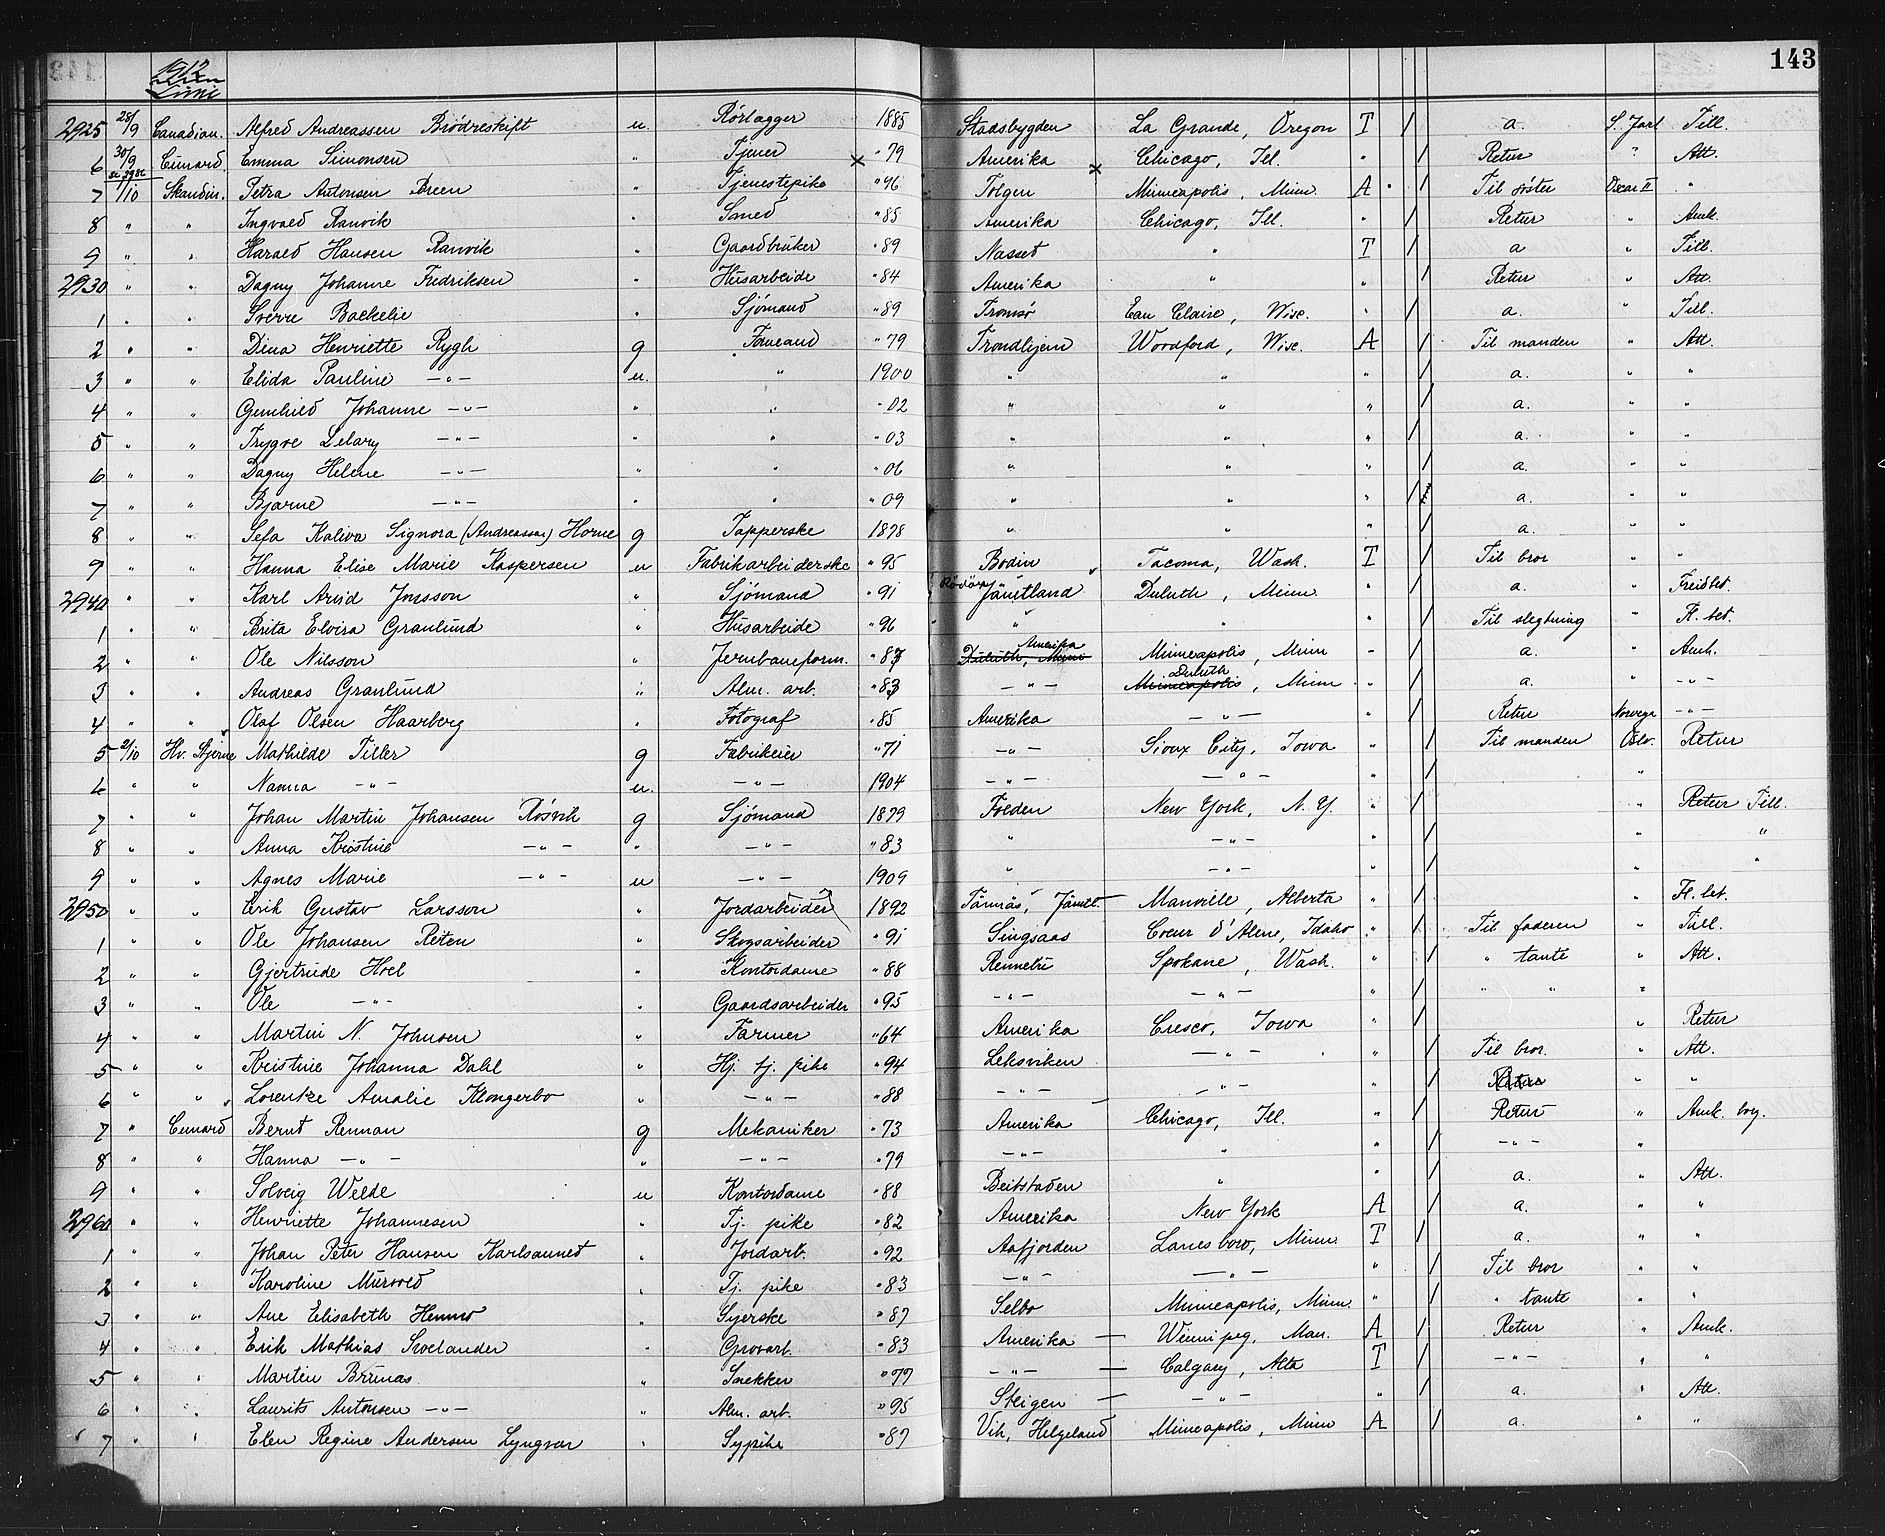 143
1912
Linie
2925 28/9 Canadian. Alfred Andreassen Brødreskift u. Rørlægger 1885 Stadsbygden La Grande, Oregon T / a. S. Jarl Till.
6 30/9 Cunard. Emma Simonsen " Tjener × "79 Amerika × Chicago, Ill. " / Retur ? Att.
7 1/10 Skandin. Petra Antonsen Breen " Tjenestepike "96 Tolgen Minneapolis, Minn. A / Til søster Oscar II "
8 " " Ingvald Ranvik " Smed "85 Amerika Chicago, Ill. " / Retur " Amk.
9 " " Harald Hansen Ranvik " Gaardbruker "89 Næsset " T / a " Till.
2930 " " Dagny Johanne Fredriksen " Husarbeide "84 Amerika " " / Retur " Att.
1 " " Sverre Backelie " Sjømand "89 Tromsø Eau Claire, Wisc. " / a. " Till.
2 " " Dina Henriette Rygh g "79 Trondhjem Woodford, Wisc. A / Til manden " Att.
3 " " Elida Pauline —"— u. " 1900 " " " / a. " "
4 " " Gunhild Johanne —"— " " "02 " " " / a. " "
5 " " Trygve —"— " " "03 " " " / a. " "
6 " " Dagny Helene —"— " " "06 " " " / a. " "
7 " " Bjarne —"— " " "09 " " " / a. " "
8 " " Sefa Kaliva Signora (Andreassen) Horne g Tapperske 1878 " " " / a. " "
9 " " Hanna Elise Marie Kaspersen u Fabrikarbeiderske "95 Bodin Tacoma, Wash. T / Til bror " "
2940 " " Karl Arvid Jonsson " Sjømand "91 Rödön Jämtland Duluth, Minn. " / a. " Freidbet.
1 " " Brita Elvira Granlund " Husarbeide "96 " " " / Til slegtning " Fl. bet.
2 " " Ole Nilsson " Jernbaneform. "87 Duluth, Minn Amerika Minneapolis, Minn " / a. " Amk.
3 " " Andreas Granlund " Alm. arb. "83 —"— Minneapolis Duluth, Minn " / a. " —"—
4 " " Olaf Olsen Haarberg " Fotograf "85 Amerika —"— " / Retur Norvega —"—
5 2/10 Hv. Stjerne Mathilde Tiller g Fabrikeier "71 —"— Sioux City, Iowa " / Til manden Oslv. Retur
6 " " Nanna —"— u. —"— 1904 —"— —"— " / "
7 " " Johan Martin Johansen Røsvik g Sjømand 1879 Folden New York, N. Y " / " Retur Till.
8 " " Anna Kristine —"— " —"— "83 " —"— " / " "
9 " " Agnes Marie —"— u —"— 1909 " —"— " / " "
2950 " " Erik Gustav Larsson " Jordarbeider 1892 Tännäs, Jämtl. Manville, Alberta " / " Fl. bet.
1 " " Ole Johansen Reten " Skogsarbeider "91 Singsaas Coeur d'Alene, Idaho " / Til faderen " Till.
2 " " Gjertrude Hoel " Kontordame "88 Rennebu Spokane, Wash. " / " tante " Att.
3 " " Ole —"— " Gaardsarbeider "95 —"— —"— " / " " "
4 " " Martin N. Johnsen " Farmer "64 Amerika Cresco, Iowa " / " Retur
5 " " Kristine Johanna Dahl " Hj. tj. pike "94 Leksviken —"— " / Til bror. " Att.
6 " " Lorentze Amalie Klongerbo " —"— "88 —"— —"— " / Retur " "
7 " Cunard Bernt Renman g Mekaniker "73 Amerika Chicago, Ill. " / Retur " Amk. boy.
8 " " Hanna —"— " —"— "79 —"— " " / —"— "
9 " " Solveig Welde u Kontordame "88 Beitstaden " " / a. " Att.
2960 " " Henriette Johannesen " Tj. pike "82 Amerika New York A / a. " "
1 " " Johan Peter Hansen Karlsaunet " Jordarb. "92 Aafjorden Lanesboro, Minn. T / a. " "
2 " " Karoline Murvold " Tj. pike "83 —"— —"— " / Til bror " "
3 " " Ane Elisabeth Hemmo " Syerske "87 Selbo Minneapolis, Minn. " / " tante " "
4 " " Erik Mathias Svelander " Grovarb. "83 Amerika — Winnipeg, Man. A / Retur " Amk.
5 " " Martin Brunas " Snekker "77 —"— — Calgary, Alta T / —"— " "
6 " " Laurits Antonsen —"— " Alm. arb. "95 Steigen — —"— " / a. " Att.
7 " " Elen Regine Andersen Lyngvær " Sypike "87 Vik, Helgeland Minneapolis, Minn A / a. " "